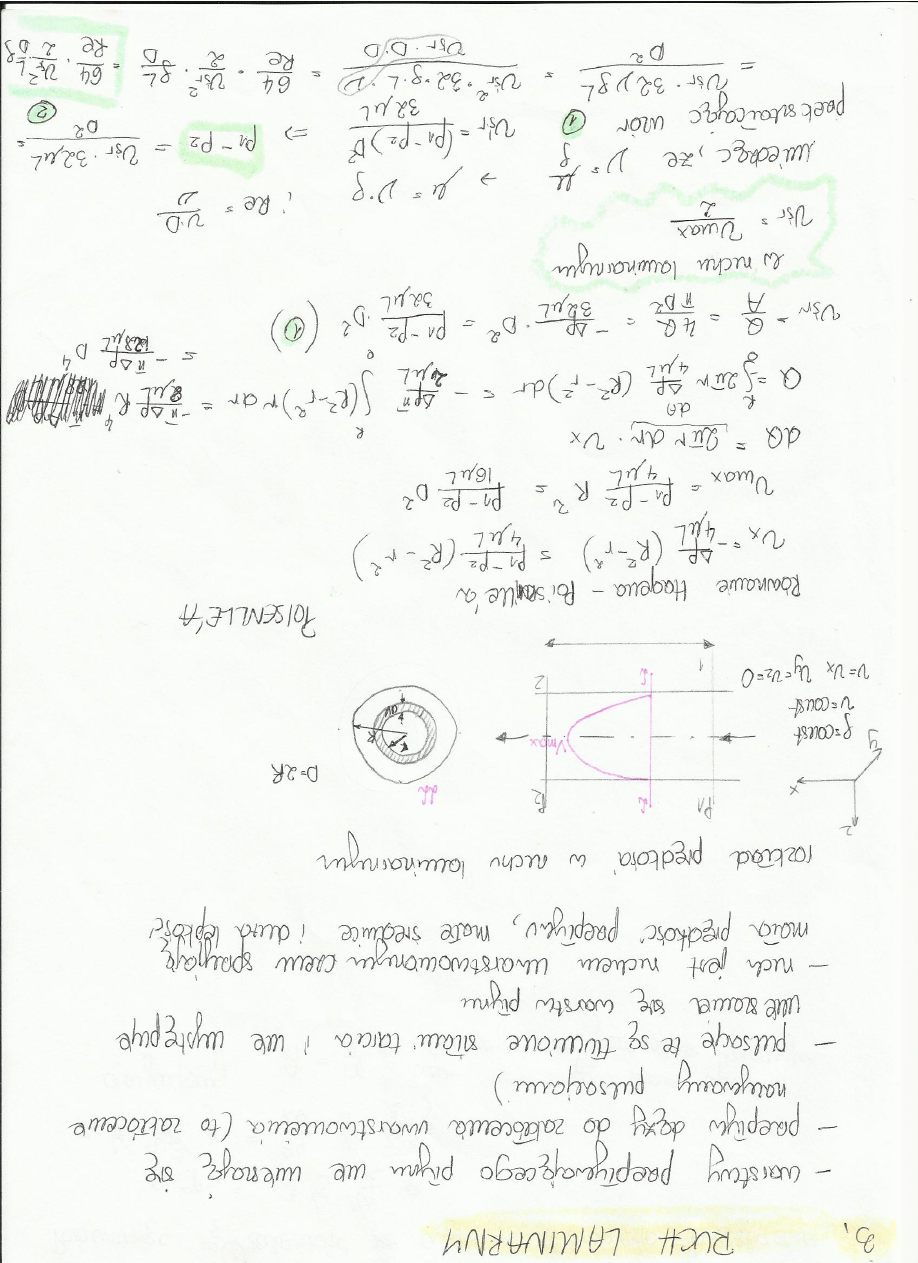 3. RUCH LAMINARNY
- warstwy przepływającego płynu nie mieszają się
- przepływ dąży do zakłócenia uwarstwowienia (to zakłócenie
nazywamy pulsacjami)
- pulsacje te są tłumione siłami tarcia i nie występuje
mieszanie się warstw płynu
- ruch jest ruchem uwarstwowionym czemu sprzyjają
mała prędkość przepływu, małe średnice i duża lepkość
rozkład prędkości w ruchu laminarnym
z x y
ρ=const
v=const
v=vx vy=vz=0
p1 p2
vmax
1 2
D=2R
R r dr
POISEUILLE'A
Równanie Hagena - Poiseuille'a
vx = -Δp/4μL (R²-r²) = p1-p2/4μL (R²-r²)
vmax = p1-p2/4μL R² = p1-p2/16μL D²
dQ = 2πr dr · vx
dA
Q = ∫₀ᴿ 2πr Δp/4μL (R²-r²)dr = - Δpπ/2μL ∫₀ᴿ (R²-r²) r dr = - πΔp/8μL R⁴
= - πΔp/128μL D⁴
vśr = Q/A = 4Q/πD² = - Δp/32μL · D² = p1-p2/32μL · D² (1)
w ruchu laminarnym
vśr = vmax/2
wiedząc, że ν = μ/ρ → μ = ν·ρ ; Re = v·D/ν
przekształcając wzór (1) vśr = (p1-p2)D²/32μL ⇒ p1-p2 = vśr·32μL/D² =
(2)
= vśr·32νρL/D² = vśr²·32·ρ·L·ν/vśr·D·D = 64/Re · vśr²/2 · ρL/D = 64/Re · vśr²/2 · L/D ρ